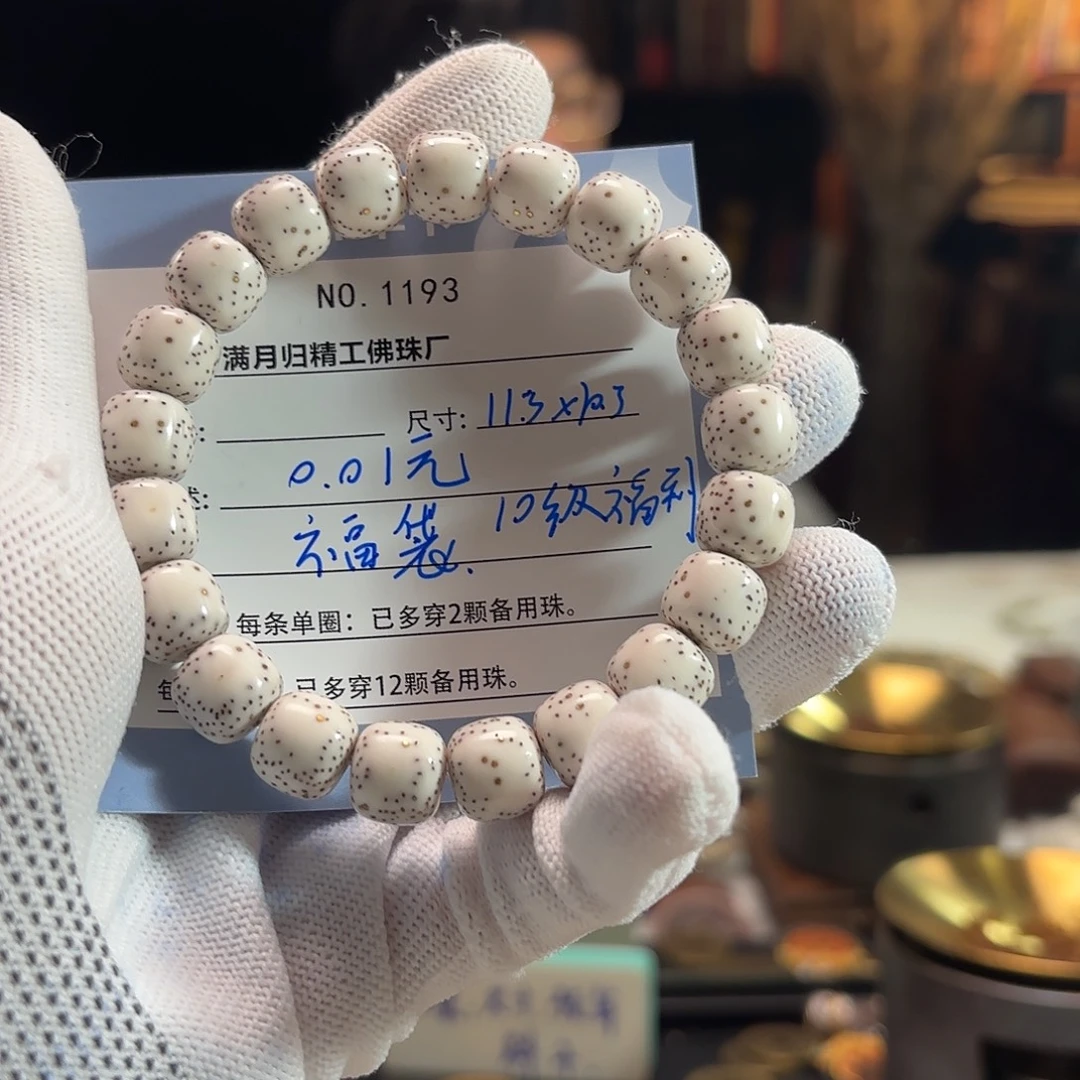 NO.1193
满月归精工佛珠厂
: 尺寸: 11.3×10.3
: 0.01元
福袋. 10级福利
每条单圈：已多穿2颗备用珠。
已多穿12颗备用珠。